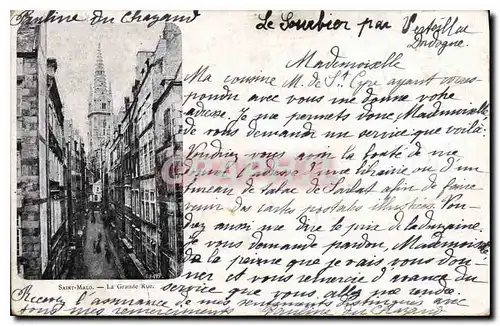 Pauline du Chazaud
Le Sourbier par Verteillac
Dordogne.
Mademoiselle
Ma cousine M. de St Cyr ayant corres-
pondu avec vous me donne votre
adresse. Je me permets donc Mademoiselle
de vous demander un service que voilà:
Voudriez vous avoir la bonté de me
donner l'adresse d'une librairie ou d'un
bureau de tabac de Sarlat afin de faire
venir des cartes postales illustrées. Vou-
driez aussi me dire le prix de la douzaine.
Je vous demande pardon, Mademoiselle
de la peine que je vais vous don-
ner et vous remercie d'avance du
service que vous allez me rendre.
Recevez l'assurance de mes sentiments distingués avec
tous mes remerciements Pauline du Chazaud
SAINT-MALO. — LA GRANDE RUE.